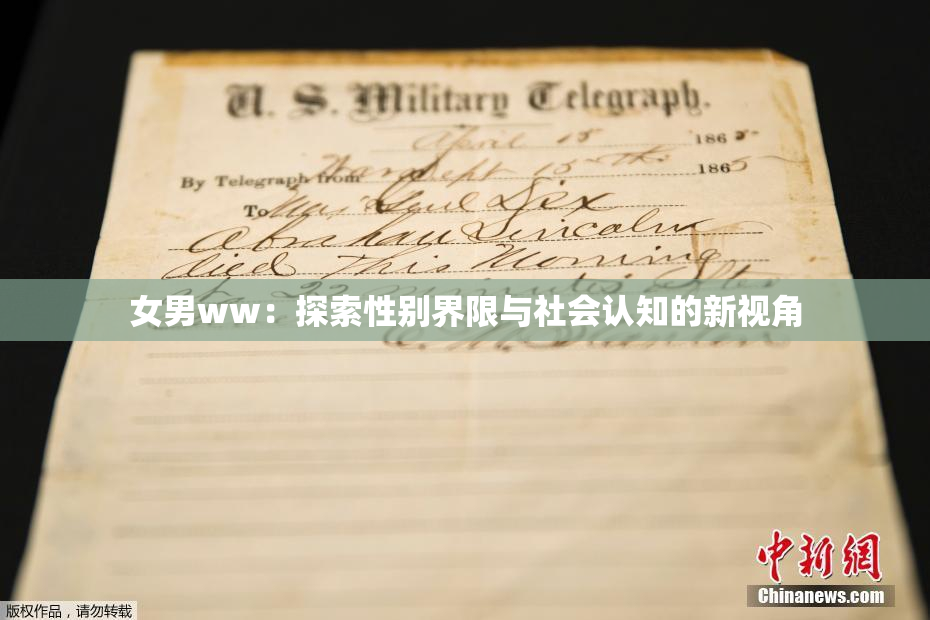 U. S. Military Telegraph.
April 15 1865
By Telegraph from War Dept 15th 1865
To Maj Genl Dix
Abraham Lincoln
died This Morning
at 22 minutes after
女男ww：探索性别界限与社会认知的新视角
E. M. Stanton
中新网
Chinanews.com
版权作品，请勿转载